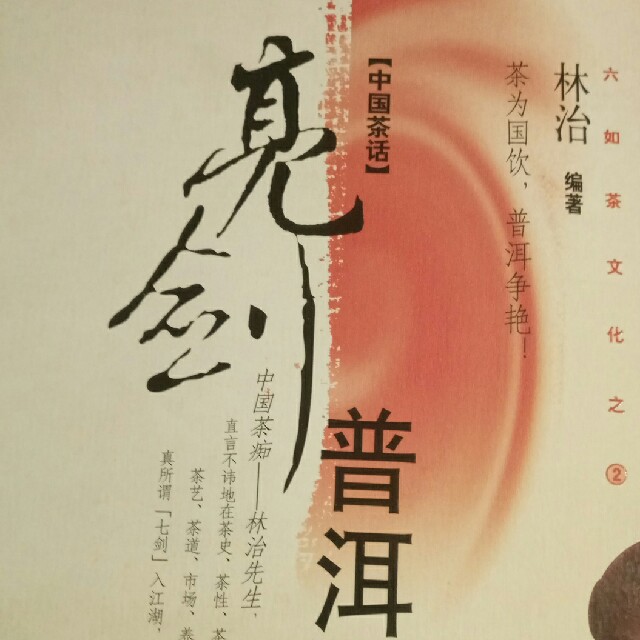 六如茶文化之②
林治 编著
茶为国饮，普洱争艳！
【中国茶话】
亮剑
普洱
中国茶痴——林治先生，
直言不讳地在茶史、茶性、茶
茶艺、茶道、市场、养
真所谓「七剑」入江湖，